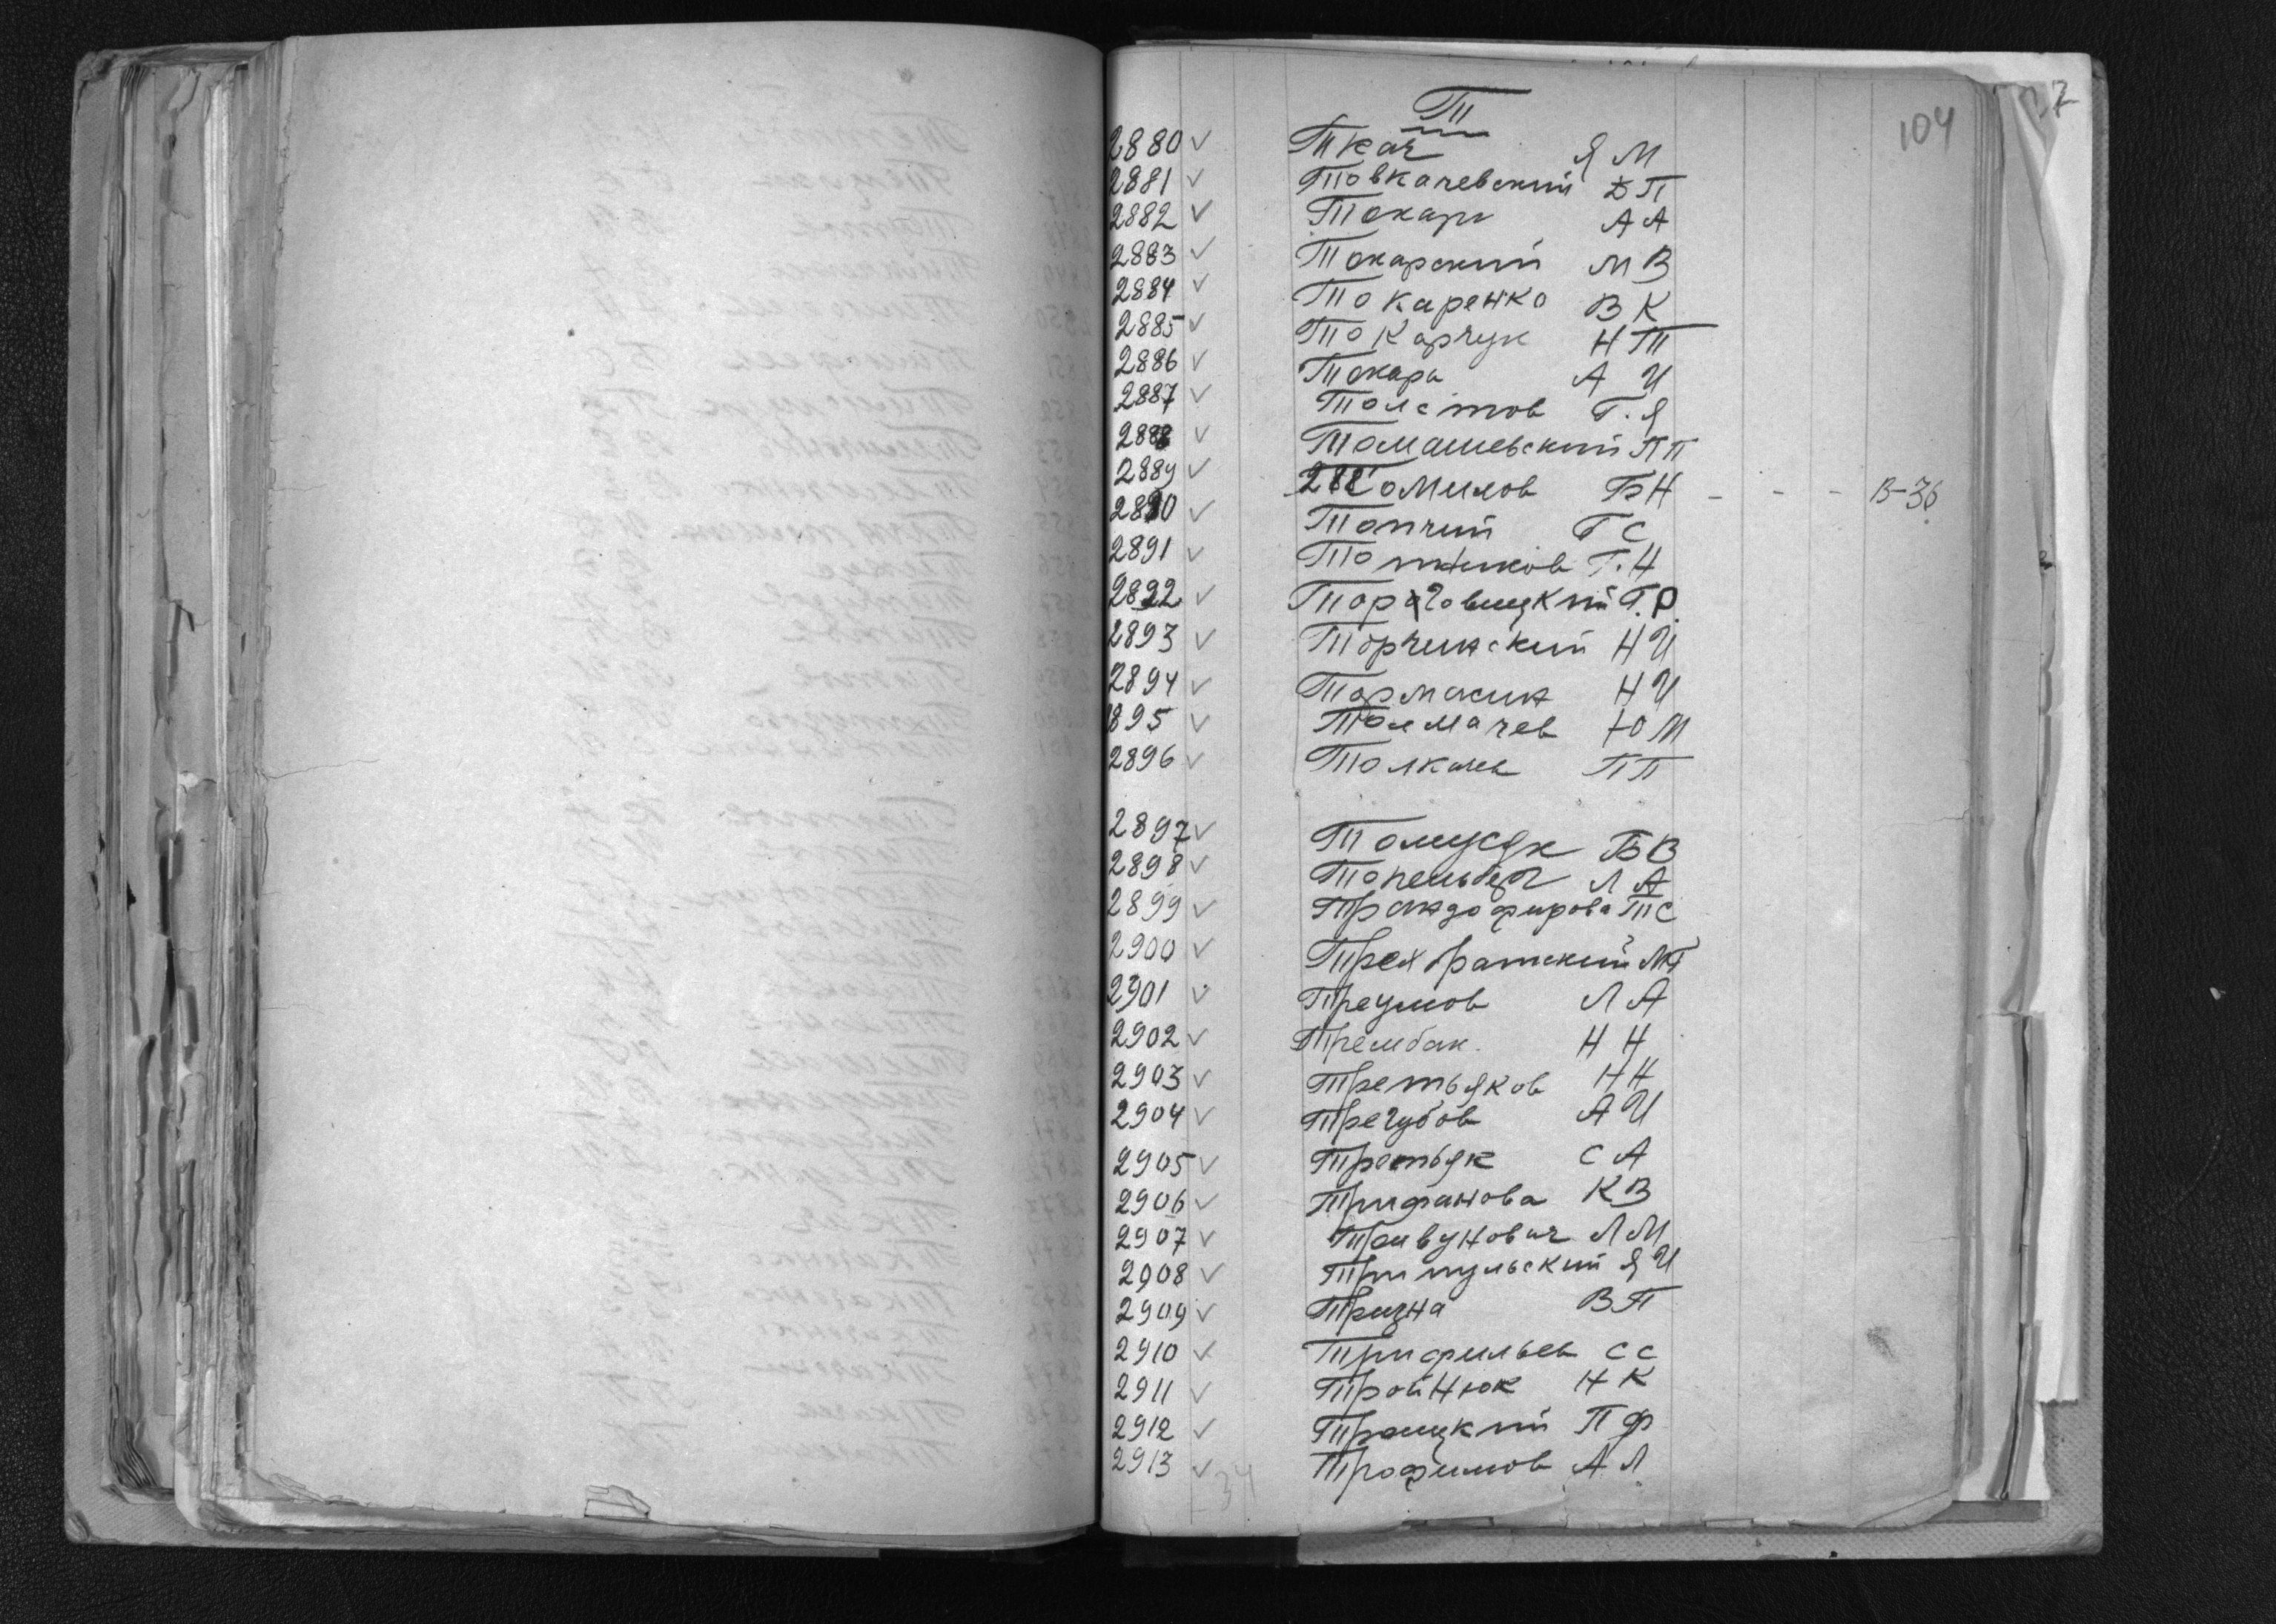 Т
104
2880 ✓ Ткач Я М
2881 ✓ Товкачевский Д П
2882 ✓ Токарь А А
2883 ✓ Токарский М В
2884 ✓ Токаренко В К
2885 ✓ Токарчук Н Т
2886 ✓ Токарь А И
2887 ✓ Толстов Г. Я
2888 ✓ Томашевский П П
2889 ✓ Томилов Б Н - - - В-36
2890 ✓ Топчий Г С
2891 ✓ Г. Н
2892 ✓ Торговицкий Г. Р.
2893 ✓ Торчинский Н И
2894 ✓ Тормасин Н И
895 ✓ Толмачев Ю М
2896 ✓ Толкачев П П
2897 ✓ Б В
2898 ✓ Топельберг Л А
2899 ✓ Трандафирова Т С
2900 ✓ Трехбратский М Г
2901 ✓ Треумов Л А
2902 ✓ Трембак. Н Н
2903 ✓ Третьяков Н Н
2904 ✓ Трегубов А И
2905 ✓ Третьяк С А
2906 ✓ Трифанова К В
2907 ✓ Тривунович Л М
2908 ✓ Трипульский Я И
2909 ✓ Тризна В П
2910 ✓ Трифильев С С
2911 ✓ Тройнюк Н К
2912 ✓ Троицкий П Ф
2913 ✓ Трофимов А Л
34